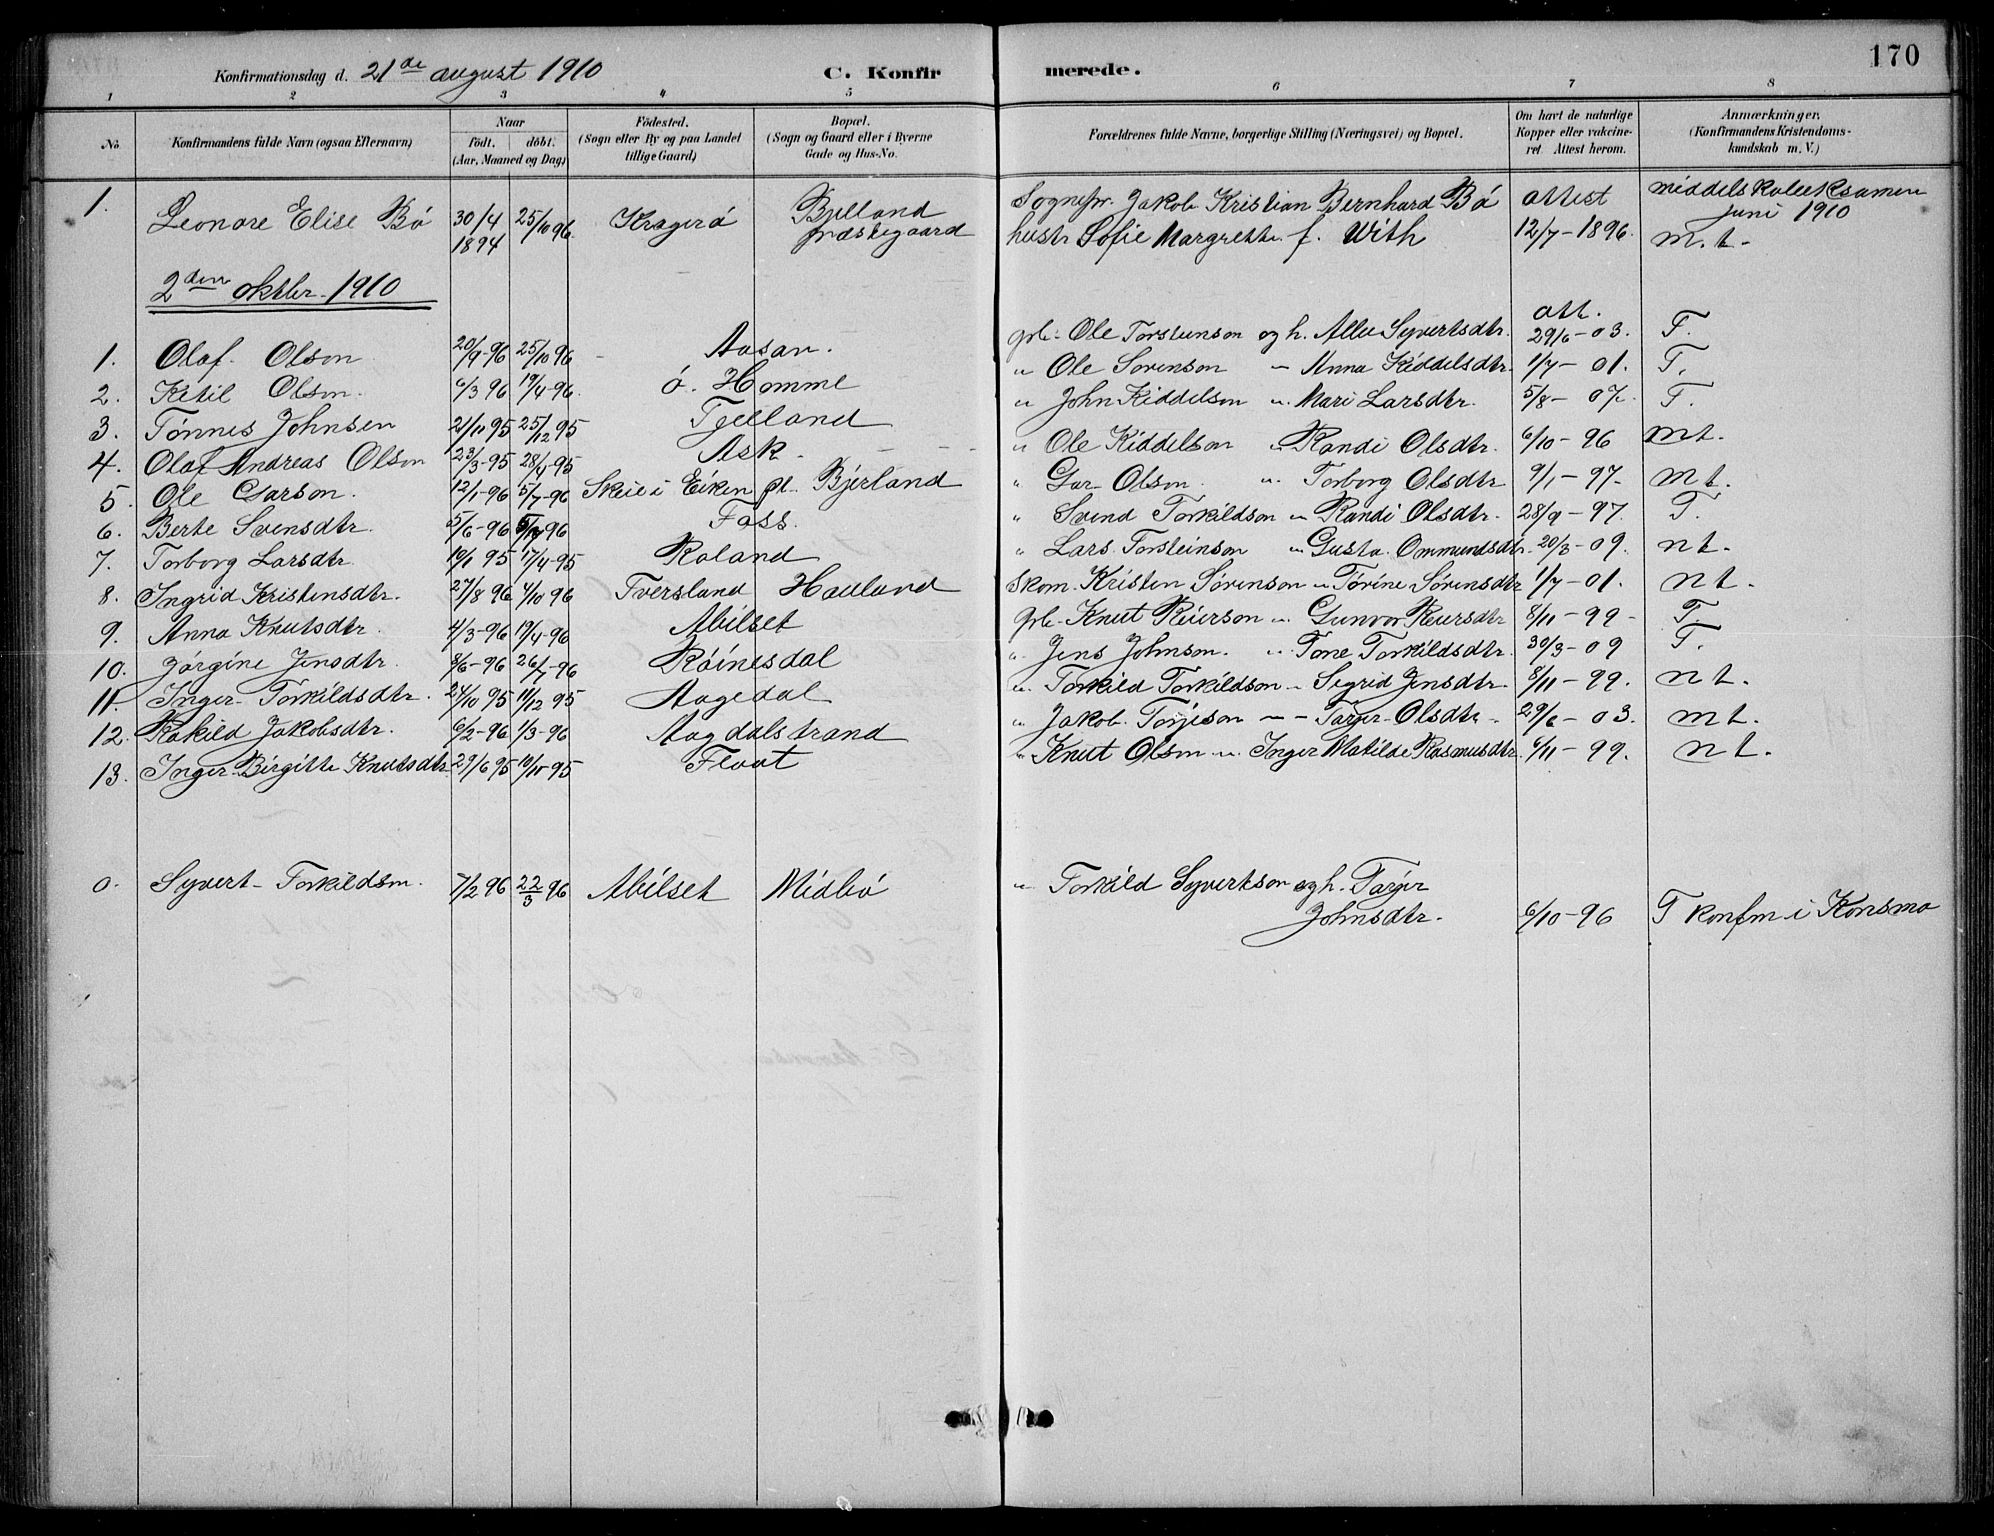 170
Konfirmationsdag d. 21de august 1910 C. Konfirmerede.
1 2 3 4 5 6 7 8
No. Konfirmandens fulde Navn (ogsaa Efternavn) Naar födt. döbt. (Aar, Maaned og Dag) Födested. (Sogn eller By og paa Landet tillige Gaard) Bopæl. (Sogn og Gaard eller i Byerne Gade og Hus-No. Forældrenes fulde Navne, borgerlige Stilling (Næringsvei) og Bopæl. Om havt de naturlige Kopper eller vakcineret Attest herom. Anmærkninger. (Konfirmandens Kristendomskundskab m. V.)
1. Leonore Elise Bö 30/4 1894 25/10 96 Kragerö Bjelland præstegaard Sognepr. Jakob Kristian Bernhard Bö hustr Sofie Margrethe f. With attest 12/7-1896. middelskoleeksamen juni 1910 m.t.
2den oktbr. 1910
1. Olaf Olson 20/9-96 25/10 96 Aasan. gbr. Ole Torsteinson og h. Allu Syvertsdtr. att. 29/6-03. T.
2. Ketil Olson. 6/3 96 19/4-96. ö. Homme " Ole Sorenson " Anna Kiddelsdtr. 1/7-01. T.
3. Tönnes Johnsen 21/11 95 25/12 95 Tjelland " John Kiddelson " Mari Larsdtr. 5/8-07. T.
4. Olaf Andreas Olson 23/3-95 28/4-95 Ask " Ole Kiddelson " Randi Olsdtr. 6/10-96 mt.
5. Ole Garson. 12/1-96 5/7-96 Skeie i Eiken pl. Bjerland " Gar Olson. " Torborg Olsdtr 9/1-97- mt.
6. Berte Svensdtr. 5/6-96 96 Foss. " Svend Torkildson " Randi Olsdtr. 28/9-97. T.
7. Torborg Larsdtr. 10/1 95 17/4-95 Roland " Lars Torsteinson " Gusta Ommundsdtr. 20/3-09. nt.
8. Ingrid Kristensdtr. 27/8 96 4/10 96 Tversland Houland skom. Kristen Sörenson " Törine Sörensdtr 1/7-01. nt.
9. Anna Knutsdtr. 4/3-96 19/4-96 Abilset gbr. Knut Reierson " Gunvor Reiersdtr 8/11-99- T.
10. Jörgine Jensdtr. 8/6-96 26/7-96 Röinesdal " Jens Johnson. " Tone Torkildsdtr. 30/3-09 T.
11. Inger Torkildsdtr. 24/10 95 11/12 95 Aagedal " Torkild Torkildson " Sigrid Jensdtr. 8/11-99. nt.
12. Rakild Jakobsdtr. 6/2-96 1/3-96 Aagdalstrand " Jakob Torjeson " Targer Olsdtr 29/6-03. mt.
13. Inger Birgitte Knutsdtr 29/6 95 10/10-95 Float " Knut Olson " Inger Matilde Rasmusdtr. /11-99. nt.
0. Syvert Torkildsn. 7/2 96 22/3 96 Abilset Midbö " Torkild Syvertson og h. Targer Johnsdtr. 6/10-96 T konfm i Konsmo